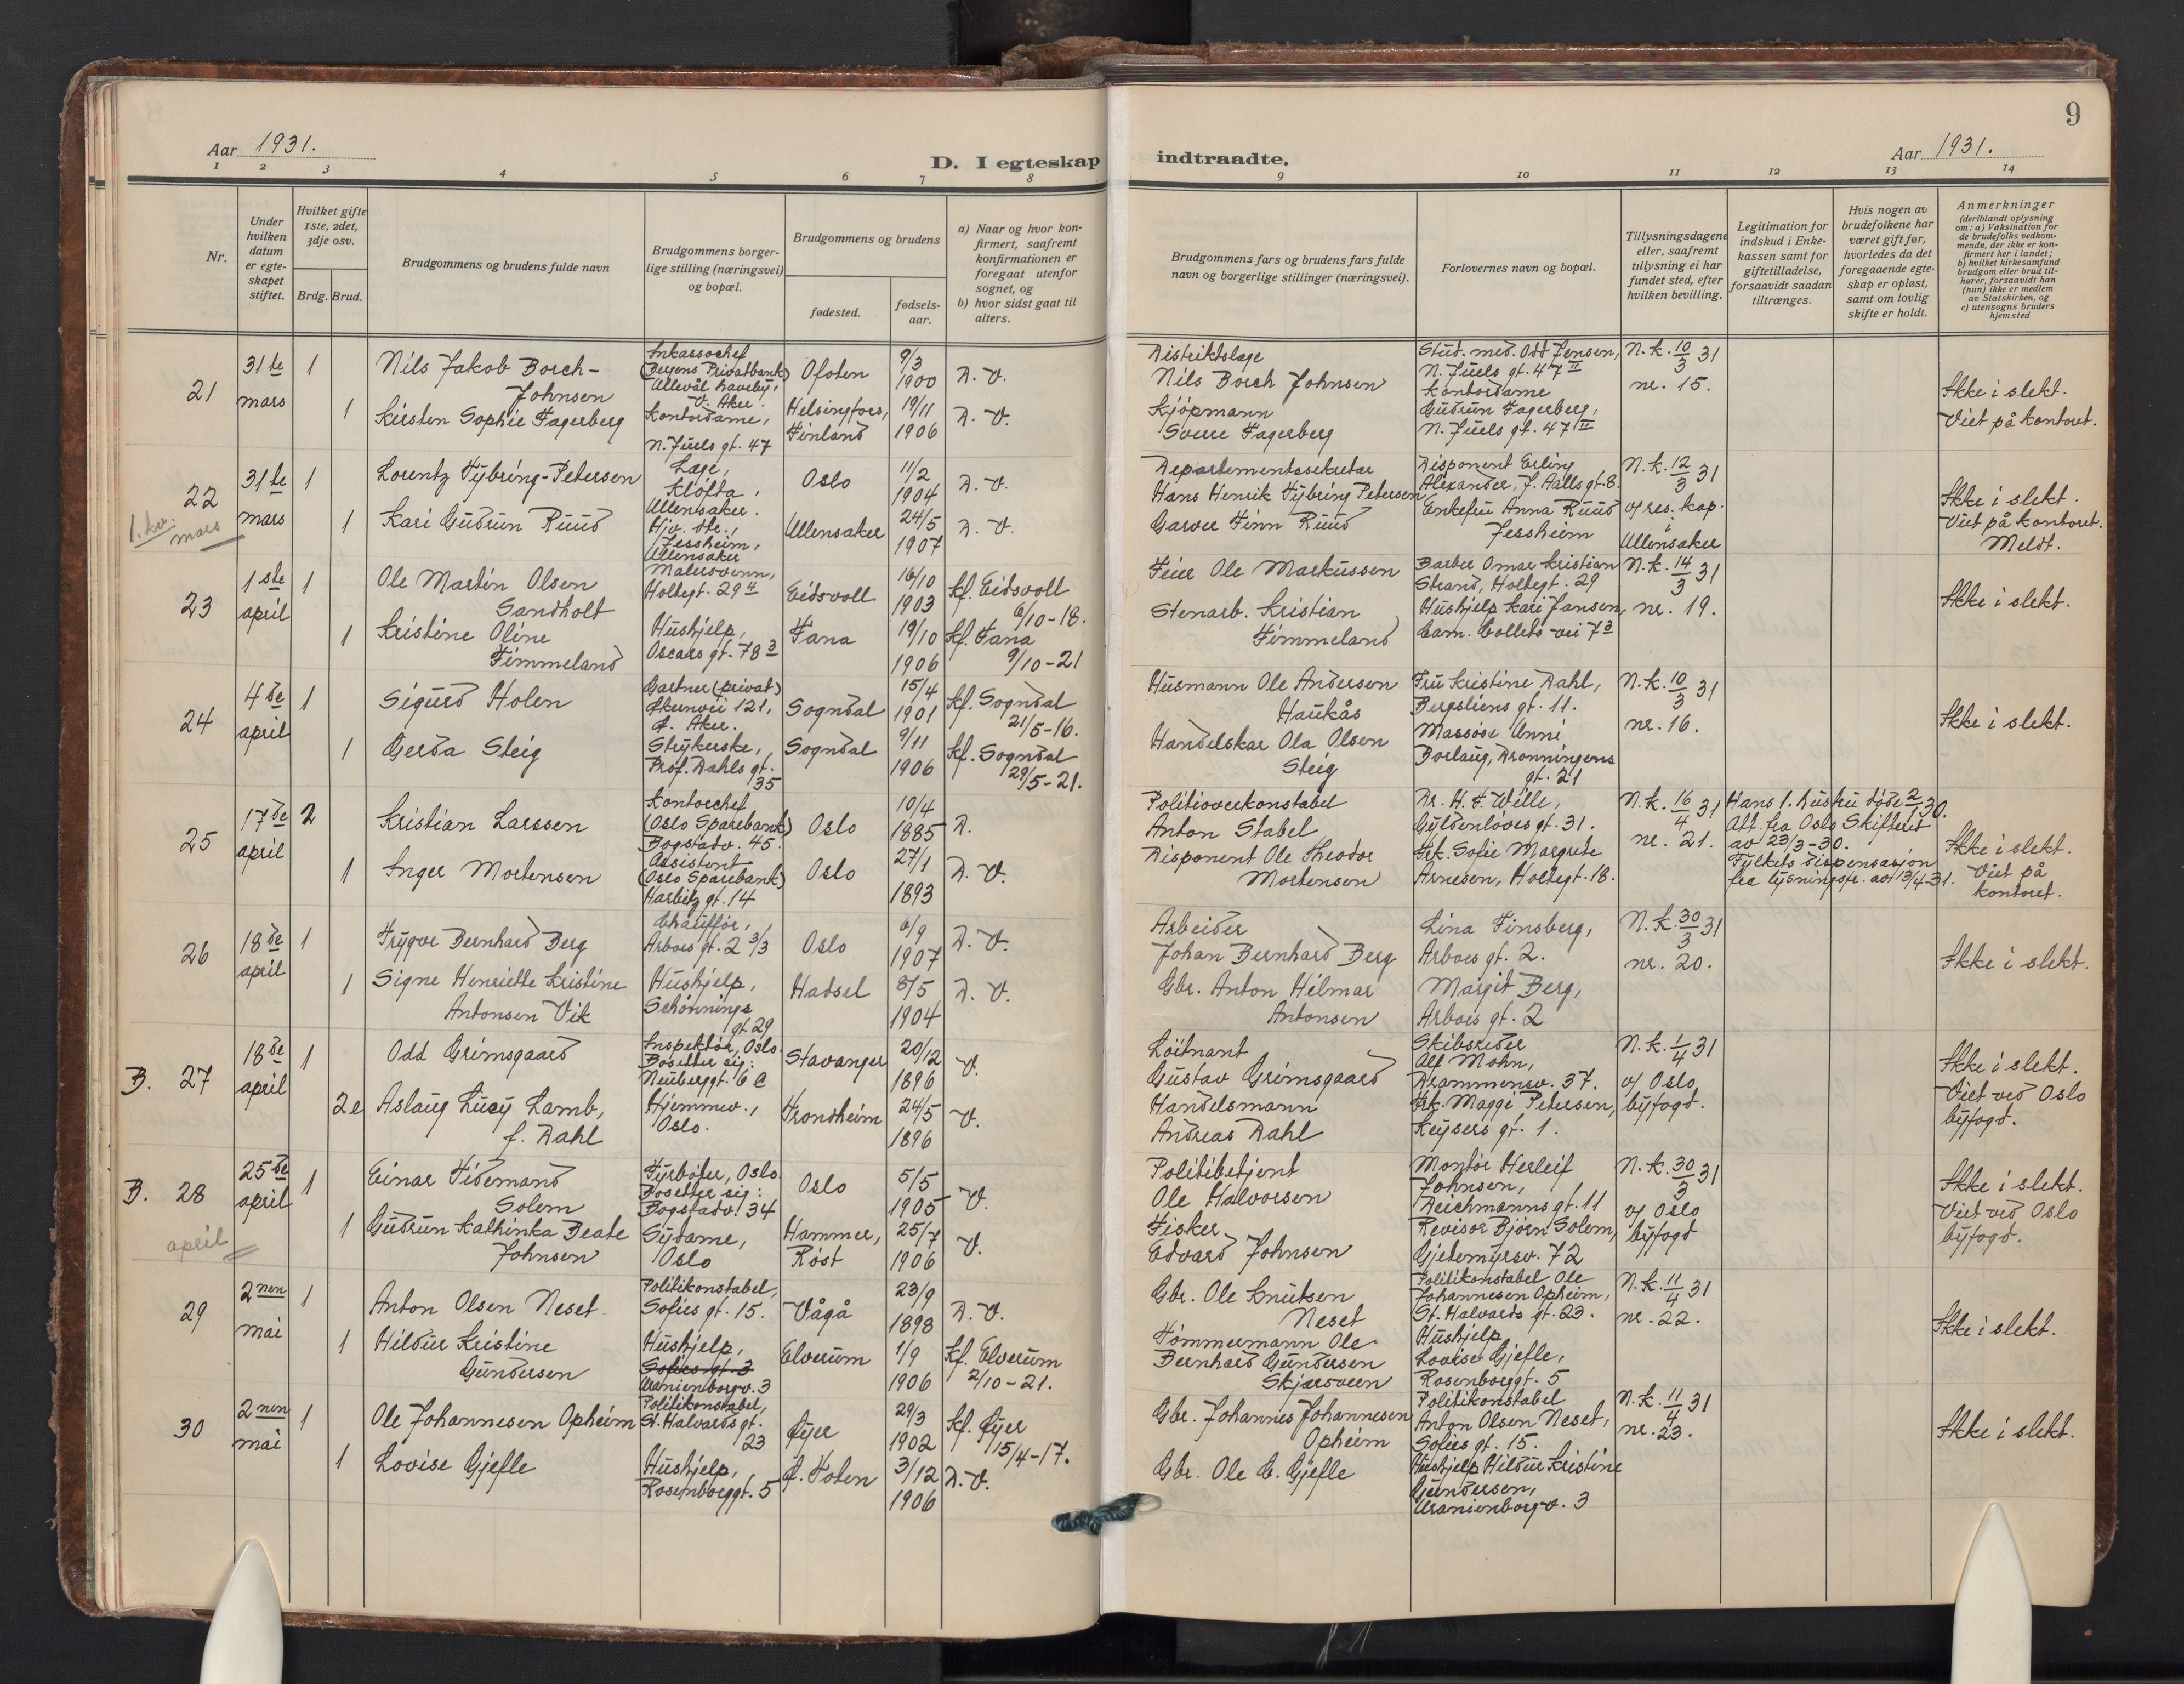 9
Aar 1931.
D. I egteskap indtraadte.
Aar 1931.
1 2 3 4 5 6 7 8 9 10 11 12 13 14
Nr.
Under
hvilken
datum
er egte-
skapet
stiftet.
Hvilket gifte
1ste, 2det,
3dje osv.
Brdg. Brud.
Brudgommens og brudens fulde navn
Brudgommens borger-
lige stilling (næringsvei)
og bopæl.
Brudgommens og brudens
fødested.
fødsels-
aar.
a) Naar og hvor kon-
firmert, saafremt
konfirmationen er
foregaat utenfor
sognet, og
b) hvor sidst gaat til
alters.
Brudgommens fars og brudens fars fulde
navn og borgerlige stillinger (næringsvei).
Forlovernes navn og bopæl.
Tillysningsdagene
eller, saafremt
tillysning ei har
fundet sted, efter
hvilken bevilling.
Legitimation for
indskud i Enke-
kassen samt for
giftetilladelse,
forsaavidt saadan
tiltrænges.
Hvis nogen av
brudefolkene har
været gift før,
hvorledes da det
foregaaende egte-
skap er opløst,
samt om lovlig
skifte er holdt.
Anmerkninger
(deriblandt oplysning
om: a) Vaksination for
de brudefolks vedkom-
mende, der ikke er kon-
firmert her i landet;
b) hvilket kirkesamfund
brudgom eller brud til-
hører, forsaavidt han
(hun) ikke er medlem
av Statskirken, og
c) utensogns bruders
hjemsted
21
31te
mars
1
Nils Jakob Borch-
Johnsen
Inkassochef
(Bergens Privatbank)
Ullevål haveby,
V. Aker.
Ofoten
9/3
1900
D. V.
Distriktslæge
Nils Borch Johnsen
Stud. med. Odd Jensen,
N. Juels gt. 47 II
N. k. 10/3 31
nr. 15.
Ikke i slekt.
Viet på kontoret.
1
Kirsten Sophie Fagerberg
Kontordame,
N. Juels gt. 47
Helsingfors,
Finland
19/11
1906
D. V.
Kjøpmann
Sverre Fagerberg
Kontordame
Gudrun Fagerberg,
N. Juels gt. 47 II
22
1. kv.
mars
31te
mars
1
Lorentz Fybring-Petersen
Læge,
Kløfta,
Ullensaker.
Oslo
11/2
1904
D. V.
Departementssekretær
Hans Henrik Fybring Petersen
Disponent Erling
Alexander, J. Aalls gt. 8.
N. k. 12/3 31
v/ res. kap.
i
Ullensaker
Ikke i slekt.
Viet på kontoret.
Meldt.
1
Kari Gudrun Ruud
Hjv. dtr.,
Jessheim,
Ullensaker
Ullensaker
24/5
1907
D. V.
Garver Finn Ruud
Enkefru Anna Ruud
Jessheim
23
1ste
april
1
Ole Martin Olsen
Sandholt
Malersvenn,
Holtegt. 29 II
Eidsvoll
16/10
1903
Kf. Eidsvoll
6/10-18.
Feier Ole Markussen
Barber Omar Kristian
Strand, Holtegt. 29
N. k. 14/3 31
nr. 19.
Ikke i slekt.
1
Kristine Oline
Fimmeland
Hushjelp,
Oscars gt. 78 3
Fana
19/10
1906
Kf. Fana
9/10-21
Stenarb. Kristian
Fimmeland
Hushjelp Kari Jansen,
Cam. Colletts vei 7 3
24
4de
april
1
Sigurd Holen
Gartner (privat)
Økernvei 121,
Ø. Aker.
Sogndal
15/4
1901
Kf. Sogndal
21/5-16.
Husmann Ole Andersen
Haukås
Fru Kristine Dahl,
Bergsliens gt. 11.
N. k. 10/3 31
nr. 16.
Ikke i slekt.
1
Gerda Steig
Strykerske,
Prof. Dahls gt.
35
Sogndal
9/11
1906
Kf. Sogndal
29/5-21.
Handelskar Ola Olsen
Steig
Massøse Unni
Borlaug, Dronningens
gt. 21
25
17de
april
2
Kristian Larssen
Kontorchef
(Oslo Sparebank)
Bogstadv. 45.
Oslo
10/4
1885
D.
Politioverkonstabel
Anton Stabel
Dr. H. F. Wille,
Gyldenløves gt. 31.
N. k. 16/4 31
nr. 21.
Hans 1. hustru døde 2/1 30.
Att. fra Oslo Skifterett
av 23/3-30.
Fylkets dispensasjon
fra lysningsfr. av 13/4-31.
Ikke i slekt.
Viet på
kontoret.
1
Inger Mortensen
Assistent
(Oslo Sparebank)
Harbitz gt. 14
Oslo
27/1
1893
D. V.
Disponent Ole Theodor
Mortensen
Frk. Sofie Margrete
Arnesen, Holtegt. 18.
26
18de
april
1
Trygve Bernhard Berg
Chauffør,
Arbos gt. 2 3/3
Oslo
6/9
1907
D. V.
Arbeider
Johan Bernhard Berg
Lina Finsberg,
Arboes gt. 2.
N. k. 30/3 31
nr. 20.
Ikke i slekt.
1
Signe Henriette Kristine
Antonsen Vik
Hushjelp,
Schønnings
gt. 29
Hadsel
8/5
1904
D. V.
Gbr. Anton Hilmar
Antonsen
Margit Berg,
Arboes gt. 2
B. 27
18de
april
1
Odd Grimsgaard
Inspektør, Oslo.
Bosetter sig:
Neuberggt. 6 C
Stavanger
20/12
1896
V.
Løitnant
Gustav Grimsgaard
Skibsreder
Alf Mohn,
Drammensv. 37.
N. k. 1/4 31
v/ Oslo
byfogd.
Ikke i slekt.
Viet ved Oslo
byfogd.
2e
Aslaug Lucy Lamb,
f. Dahl
Hjemmev.,
Oslo.
Trondheim
24/5
1896
V.
Handelsmann
Andreas Dahl
Frk. Maggi Petersen,
Keysers gt. 1.
B. 28
april
25de
april
1
Einar Tidemand
Solem
Fyrbøter, Oslo
Bosetter sig:
Bogstadv. 34
Oslo
5/5
1905
V.
Politibetjent
Ole Halvorsen
Montør Herleif
Johnsen,
Deichmanns gt. 11
N. k. 30/3 31
v/ Oslo
byfogd
Ikke i slekt.
Viet ved Oslo
byfogd.
1
Gudrun Kathinka Beate
Johnsen
Sydame,
Oslo
Hammer,
Røst
25/7
1906
V.
Fisker
Edvard Johnsen
Revisor Bjørn Solem,
Gjetemyrsv. 72
29
2nen
mai
1
Anton Olsen Neset
Politikonstabel,
Sofies gt. 15.
Vågå
23/9
1898
D. V.
Gbr. Ole Knutsen
Neset
Politikonstabel Ole
Johannesen Opheim,
St. Halvards gt. 23.
N. k. 11/4 31
nr. 22.
Ikke i slekt.
1
Hildur Kristine
Gundersen
Hushjelp,
Sofies gt. 3
Uranienborgv. 3
Elverum
1/9
1906
Kf. Elverum
2/10-21.
Tømmermann Ole
Bernhard Gundersen
Skjærsveen
Hushjelp
Lovise Gjefle,
Rosenborggt. 5
30
2nen
mai
1
Ole Johannesen Opheim
Politikonstabel,
St. Halvards gt.
23
Øyer
29/3
1902
Kf. Øyer
15/4-17.
Gbr. Johannes Johannesen
Opheim
Politikonstabel
Anton Olsen Neset,
Sofies gt. 15.
N. k. 11/4 31
nr. 23.
Ikke i slekt.
1
Lovise Gjefle
Hushjelp,
Rosenborggt. 5
Ø. Toten
3/12
1906
D. V.
Gbr. Ole C. Gjefle
Hushjelp Hildur Kristine
Gundersen,
Uranienborgv. 3